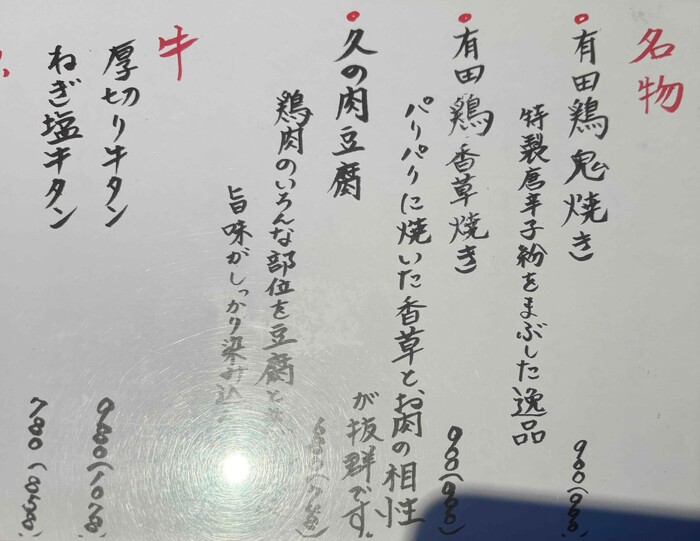 名物
有田鶏鬼焼き
900(990)
特製唐辛子粉をまぶした逸品
有田鶏香草焼き
900(990)
パリパリに焼いた香草と、お肉の相性
が抜群です。
久の肉豆腐
鶏肉のいろんな部位を豆腐と
旨味がしっかり染み込
牛
厚切り牛タン
980(1078)
ねぎ塩牛タン
780(858)